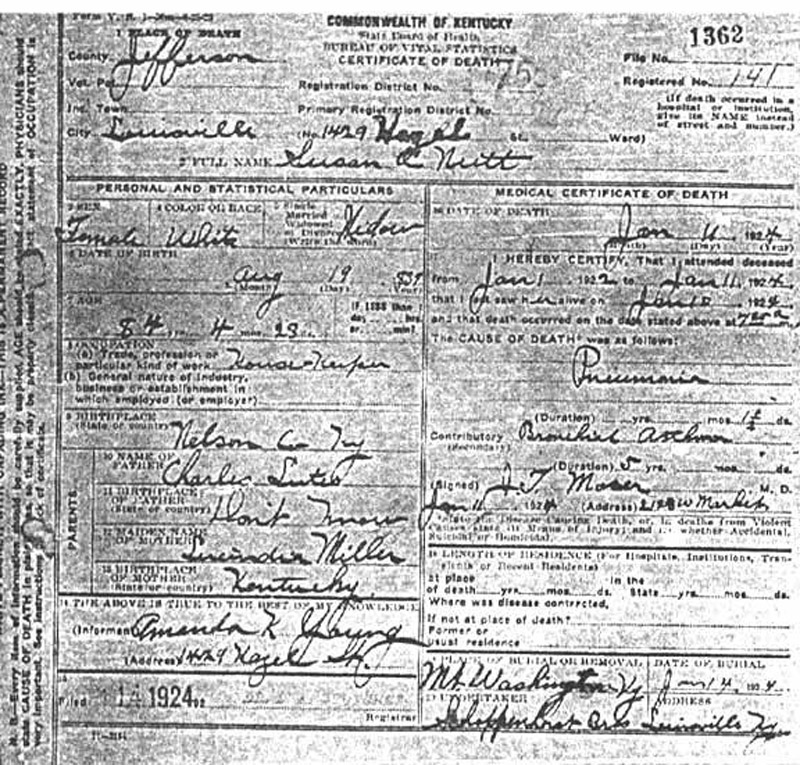 COMMONWEALTH OF KENTUCKY
State Board of Health
BUREAU OF VITAL STATISTICS
CERTIFICATE OF DEATH
1362
1 PLACE OF DEATH
County Jefferson
File No.
Vot. Pct.
Registration District No. 75
Registered No. 141
Inc. Town
Primary Registration District No.
(If death occurred in a hospital or institution, give its NAME instead of street and number.)
City Louisville (No. 1429 Hazel St. Ward)
2 FULL NAME Susan C.
PERSONAL AND STATISTICAL PARTICULARS
3 SEX Female
4 COLOR OR RACE White
5 Single Married Widowed or Divorced (Write the word) Widow
6 DATE OF BIRTH
Aug 19
(Month) (Day) (Year)
7 AGE
84 yrs. 4 mos. 23 ds.
If LESS than day hrs. or min?
8 OCCUPATION
(a) Trade, profession or particular kind of work House-Keeper
(b) General nature of industry, business or establishment in which employed (or employer)
9 BIRTHPLACE
(State or country) Nelson Co Ky
PARENTS
10 NAME OF FATHER Charles
11 BIRTHPLACE OF FATHER (State or country) Don't Know
12 MAIDEN NAME OF MOTHER Lucinda Miller
13 BIRTHPLACE OF MOTHER (State or country) Kentucky
14 THE ABOVE IS TRUE TO THE BEST OF MY KNOWLEDGE
(Informant) Amanda K Young
(Address) 1429 Hazel St.
15
Filed 14 1924
Registrar
MEDICAL CERTIFICATE OF DEATH
16 DATE OF DEATH
Jan 11 1924
(Month) (Day) (Year)
17 I HEREBY CERTIFY, That I attended deceased
from Jan 1 1922 to Jan 11, 1924
that I last saw her alive on Jan 10 1924
and that death occurred on the date stated above at
The CAUSE OF DEATH* was as follows:
Pneumonia
(Duration) yrs. mos. ds.
Contributory Bronchial Asthma
(Secondary)
(Duration) 5 yrs. mos. ds.
(Signed) J. T. Moser M. D.
Jan 11 1924 (Address) W Market
*State the Disease Causing Death, or, in deaths from Violent Causes, state (1) Means of Injury; and (2) whether Accidental, Suicidal or Homicidal.
18 LENGTH OF RESIDENCE (For Hospitals, Institutions, Transients or Recent Residents)
At place of death yrs. mos. ds. In the State yrs. mos. ds.
Where was disease contracted,
If not at place of death?
Former or usual residence
19 PLACE OF BURIAL OR REMOVAL
DATE OF BURIAL
Mt. Washington Ky
Jan 14, 1924
20 UNDERTAKER
ADDRESS
Schoppenhorst Bros Louisville Ky